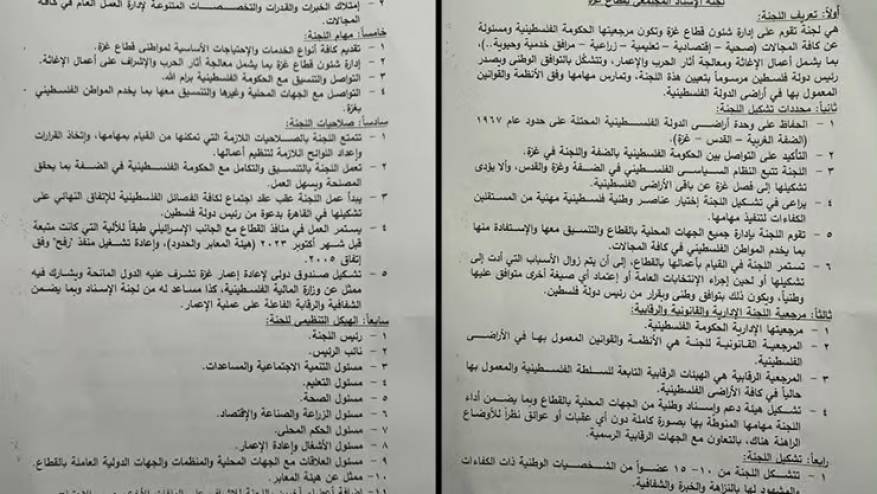 لجنة الإسناد المجتمعي بقطاع غزة
أولاً: تعريف اللجنة:
هي لجنة تقوم على إدارة شئون قطاع غزة وتكون مرجعيتها الحكومة الفلسطينية ومسئولة
عن كافة المجالات (صحية - إقتصادية - تعليمية - زراعية - مرافق خدمية وحيوية..)،
بما يشمل أعمال الإغاثة ومعالجة آثار الحرب والإعمار، وتتشكل بالتوافق الوطنى وبصدر
رئيس دولة فلسطين مرسوماً بتعيين هذة اللجنة، وتمارس مهامها وفق الأنظمة والقوانين
المعمول بها في أراضى الدولة الفلسطينية.
ثانياً: محددات تشكيل اللجنة:
١ - الحفاظ على وحدة أراضى الدولة الفلسطينية المحتلة على حدود عام ١٩٦٧
(الضفة الغربية - القدس - غزة).
٢ - التأكيد على التواصل بين الحكومة الفلسطينية بالضفة واللجنة في غزة.
٣ - اللجنة تتبع النظام السياسى الفلسطيني في الضفة وغزة والقدس، وألا يؤدى
تشكيلها إلى فصل غزة عن باقى الأراضى الفلسطينية.
٤ - يراعى في تشكيل اللجنة إختيار عناصر وطنية فلسطينية مهنية من المستقلين
الكفاءات لتنفيذ مهامها.
٥ - تقوم اللجنة بإدارة جميع الجهات المحلية بالقطاع والتنسيق معها والإستفادة منها
بما يخدم المواطن الفلسطيني في كافة المجالات.
٦ - تستمر اللجنة في القيام بأعمالها بالقطاع، إلى أن يتم زوال الأسباب التي أدت إلى
تشكيلها أو لحين إجراء الإنتخابات العامة أو إعتماد أي صيغة أخرى متوافق عليها
وطنياً، ويكون ذلك بتوافق وطنى وبقرار من رئيس دولة فلسطين.
ثالثاً: مرجعية اللجنة الإدارية والقانونية والرقابية:
١ - مرجعيتها الإدارية الحكومة الفلسطينية.
٢ - المرجعية القانونية للجنة هي الأنظمة والقوانين المعمول بها في الأراضى
الفلسطينية.
٣ - المرجعية الرقابية هي الهيئات الرقابية التابعة للسلطة الفلسطينية والمعمول بها
حالياً في كافة الأراضى الفلسطينية.
٤ - تشكيل هيئة دعم وإسناد وطنية من الجهات المحلية بالقطاع وبما يضمن أداء
اللجنة مهامها المنوطة بها بصورة كاملة دون أي عقبات أو عوائق نظراً للأوضاع
الراهنة هناك، بالتعاون مع الجهات الرقابية الرسمية.
رابعاً: تشكيل اللجنة:
١ - تتشكل اللجنة من ١٠ - ١٥ عضواً من الشخصيات الوطنية ذات الكفاءات
والمشهود لها بالنزاهة والخبرة والشفافية.
٢ - إمتلاك الخبرات والقدرات والتخصصات المتنوعة لإدارة العمل العام في كافة
المجالات.
خامساً: مهام اللجنة:
١ - تقديم كافة أنواع الخدمات والإحتياجات الأساسية لمواطنى قطاع غزة.
٢ - إدارة شئون قطاع غزة بما يشمل معالجة آثار الحرب والإشراف على أعمال الإغاثة.
٣ - التواصل والتنسيق مع الحكومة الفلسطينية برام الله.
٤ - التواصل مع الجهات المحلية وغيرها والتنسيق معها بما يخدم المواطن الفلسطيني
بغزة.
سادساً: صلاحيات اللجنة:
١ - تتمتع اللجنة بالصلاحيات اللازمة التي تمكنها من القيام بمهامها، وإتخاذ القرارات
وإعداد اللوائح اللازمة لتنظيم أعمالها.
٢ - تعمل اللجنة بالتنسيق والتكامل مع الحكومة الفلسطينية في الضفة بما يحقق
المصلحة ويسهل العمل.
٣ - يبدأ عمل اللجنة عقب عقد اجتماع لكافة الفصائل الفلسطينية للإتفاق النهائي على
تشكيلها في القاهرة بدعوة من رئيس دولة فلسطين.
٤ - يستمر العمل في منافذ القطاع مع الجانب الإسرائيلي طبقاً للآلية التي كانت متبعة
قبل شهر أكتوبر ٢٠٢٣ (هيئة المعابر والحدود)، وإعادة تشغيل منفذ "رفح" وفق
إتفاق ٢٠٠٥.
٥ - تشكيل صندوق دولى لإعادة إعمار غزة تشرف عليه الدول المانحة ويشارك فيه
ممثل عن وزارة المالية الفلسطينية، كذا مساعد له من لجنة الإسناد وبما يضمن
الشفافية والرقابة الفاعلة على عملية الإعمار.
سابعاً: الهيكل التنظيمى للجنة:
١ - رئيس اللجنة.
٢ - نائب الرئيس.
٣ - مسئول التنمية الاجتماعية والمساعدات.
٤ - مسئول التعليم.
٥ - مسئول الصحة.
٦ - مسئول الزراعة والصناعة والإقتصاد.
٧ - مسئول الحكم المحلى.
٨ - مسئول الأشغال وإعادة الإعمار.
٩ - مسئول العلاقات مع الجهات المحلية والمنظمات والجهات الدولية العاملة بالقطاع.
١٠ - ممثل عن هيئة المعابر.